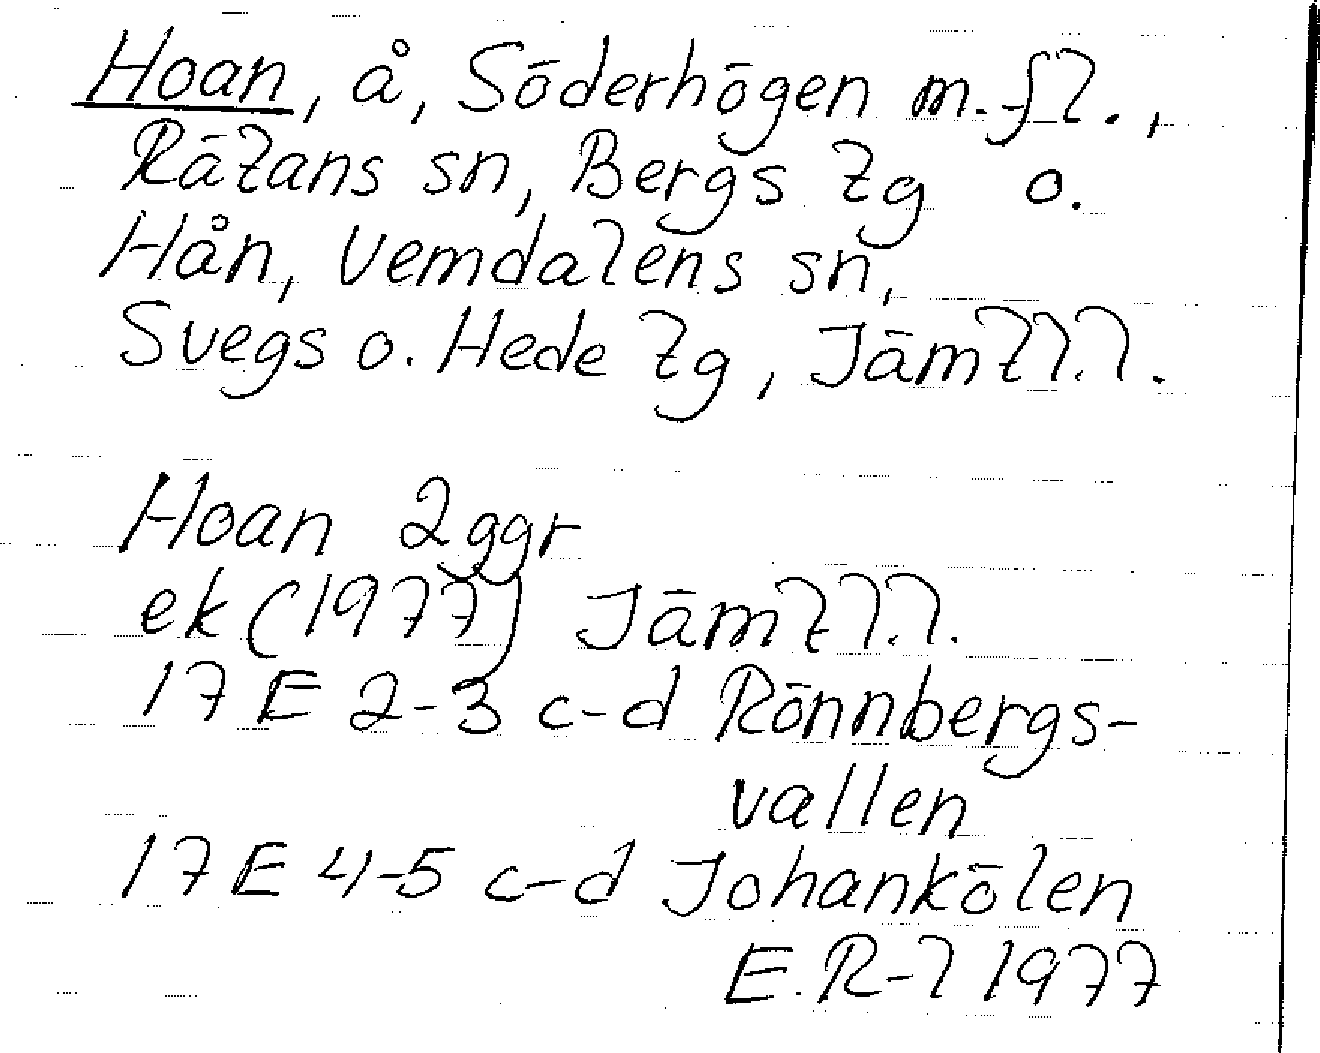 Hoan, å, Söderhögen m.fl.,
Rätans sn, Bergs tg o.
Hån, Vemdalens sn,
Svegs o. Hede tg, Jämtl.l.
Hoan 2ggr
ek (1977) Jämtl.l.
17 E 2-3 c-d Rönnbergs-
vallen
17 E 4-5 c-d Johankölen
E.R-l 1977